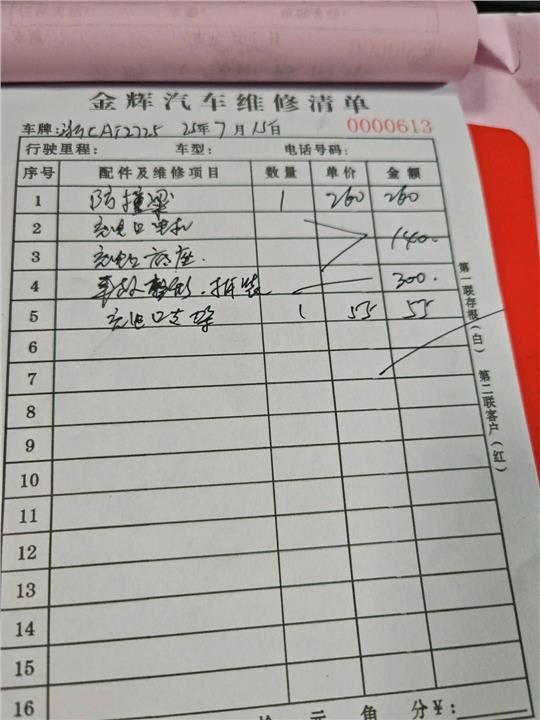 金辉汽车维修清单
车牌: 25年7月15日 0000613
行驶里程: 车型: 电话号码:
序号 配件及维修项目 数量 单价 金额
1 防撞梁 1 260 260
2 充电口电机
140.
3 充电口底座.
4 整形.拆装 300.
5 充电口支架 1 55 55
6
7
8
9
10
11
12
13
14
15
16
拾 元 角 分¥:
第一联存根(白) 第二联客户(红)